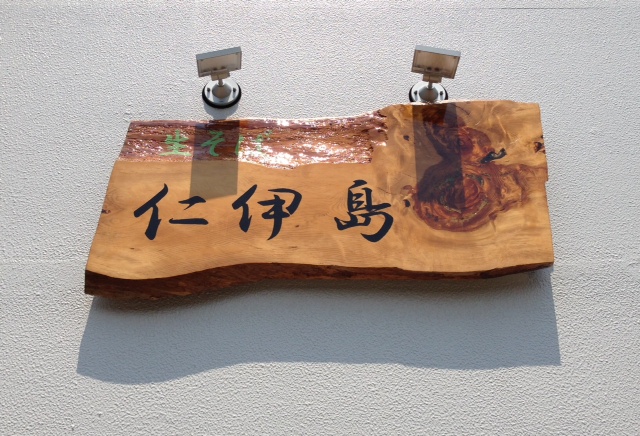 生そば
仁伊島